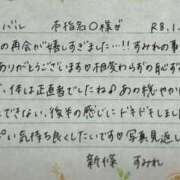 バル 本指名〇様が R8.1.
の再会が嬉しすぎました…!!すみれの事
ありがとうございます 相変わらずの恥
く、体は正直でしたね♪あの穏やか
できない、後半の感じにドキドキしまし
ぱい気持ち良くしたいです 写真見返し
新條 すみれ